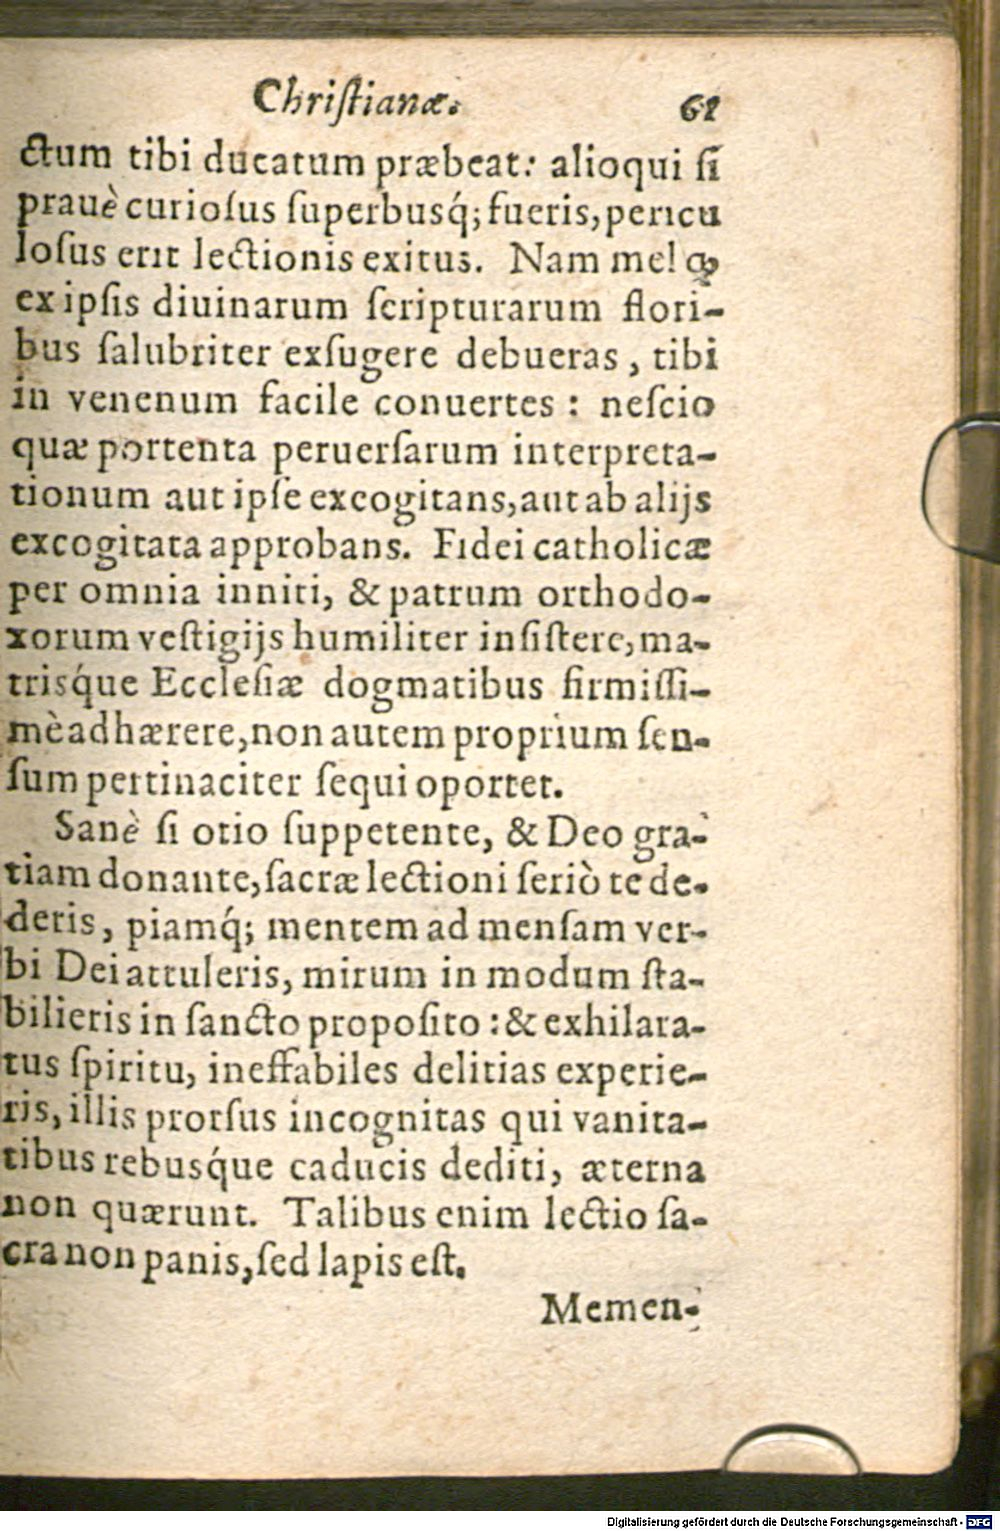 Christianæ. 61
ctum tibi ducatum præbeat: alioqui ſi
prauè curioſus ſuperbusq́; fueris, pericu
loſus erit lectionis exitus. Nam mel ꝙ
ex ipſis diuinarum ſcripturarum flori-
bus ſalubriter exſugere debueras, tibi
in venenum facile conuertes: neſcio
quæ portenta peruerſarum interpreta-
tionum aut ipſe excogitans, aut ab alijs
excogitata approbans. Fidei catholicæ
per omnia inniti, & patrum orthodo-
xorum veſtigijs humiliter inſiſtere, ma-
trisq́ue Eccleſiæ dogmatibus firmiſſi-
mè adhærere, non autem proprium ſen-
ſum pertinaciter ſequi oportet.
Sanè ſi otio ſuppetente, & Deo gra-
tiam donante, ſacræ lectioni ſeriò te de-
deris, piamq́; mentem ad menſam ver-
bi Dei attuleris, mirum in modum ſta-
bilieris in ſancto propoſito: & exhilara-
tus ſpiritu, ineffabiles delitias experie-
ris, illis prorſus incognitas qui vanita-
tibus rebusq́ue caducis dediti, æterna
non quærunt. Talibus enim lectio ſa-
cra non panis, ſed lapis eſt.
Memen-
Digitalisierung gefördert durch die Deutsche Forschungsgemeinschaft - DFG